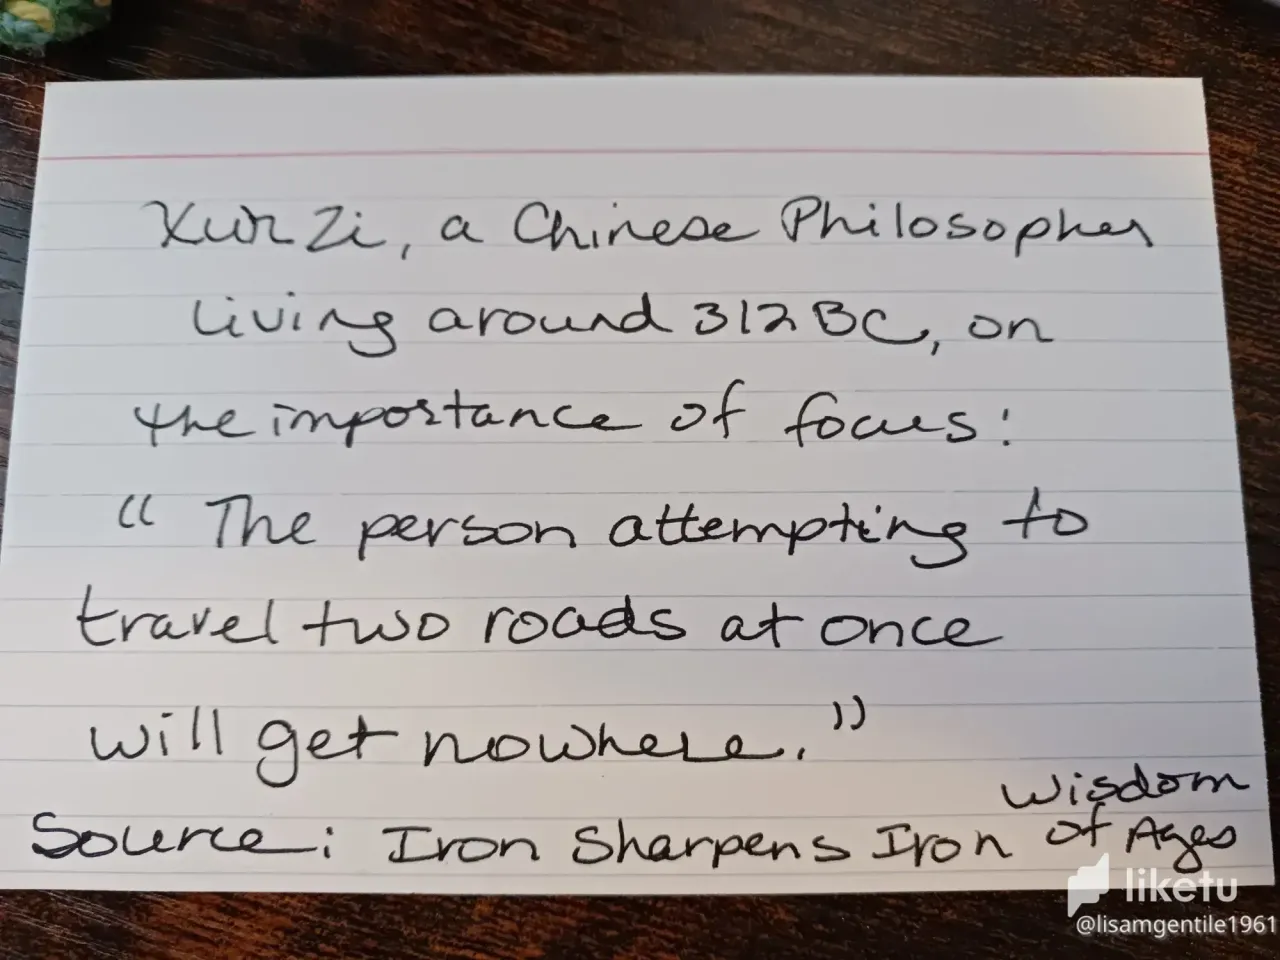 Xun Zi, a Chinese Philosopher
living around 312 BC, on
the importance of focus:
“The person attempting to
travel two roads at once
will get nowhere.”
Source: Iron Sharpens Iron Wisdom
of Ages
liketu
@lisamgentile1961